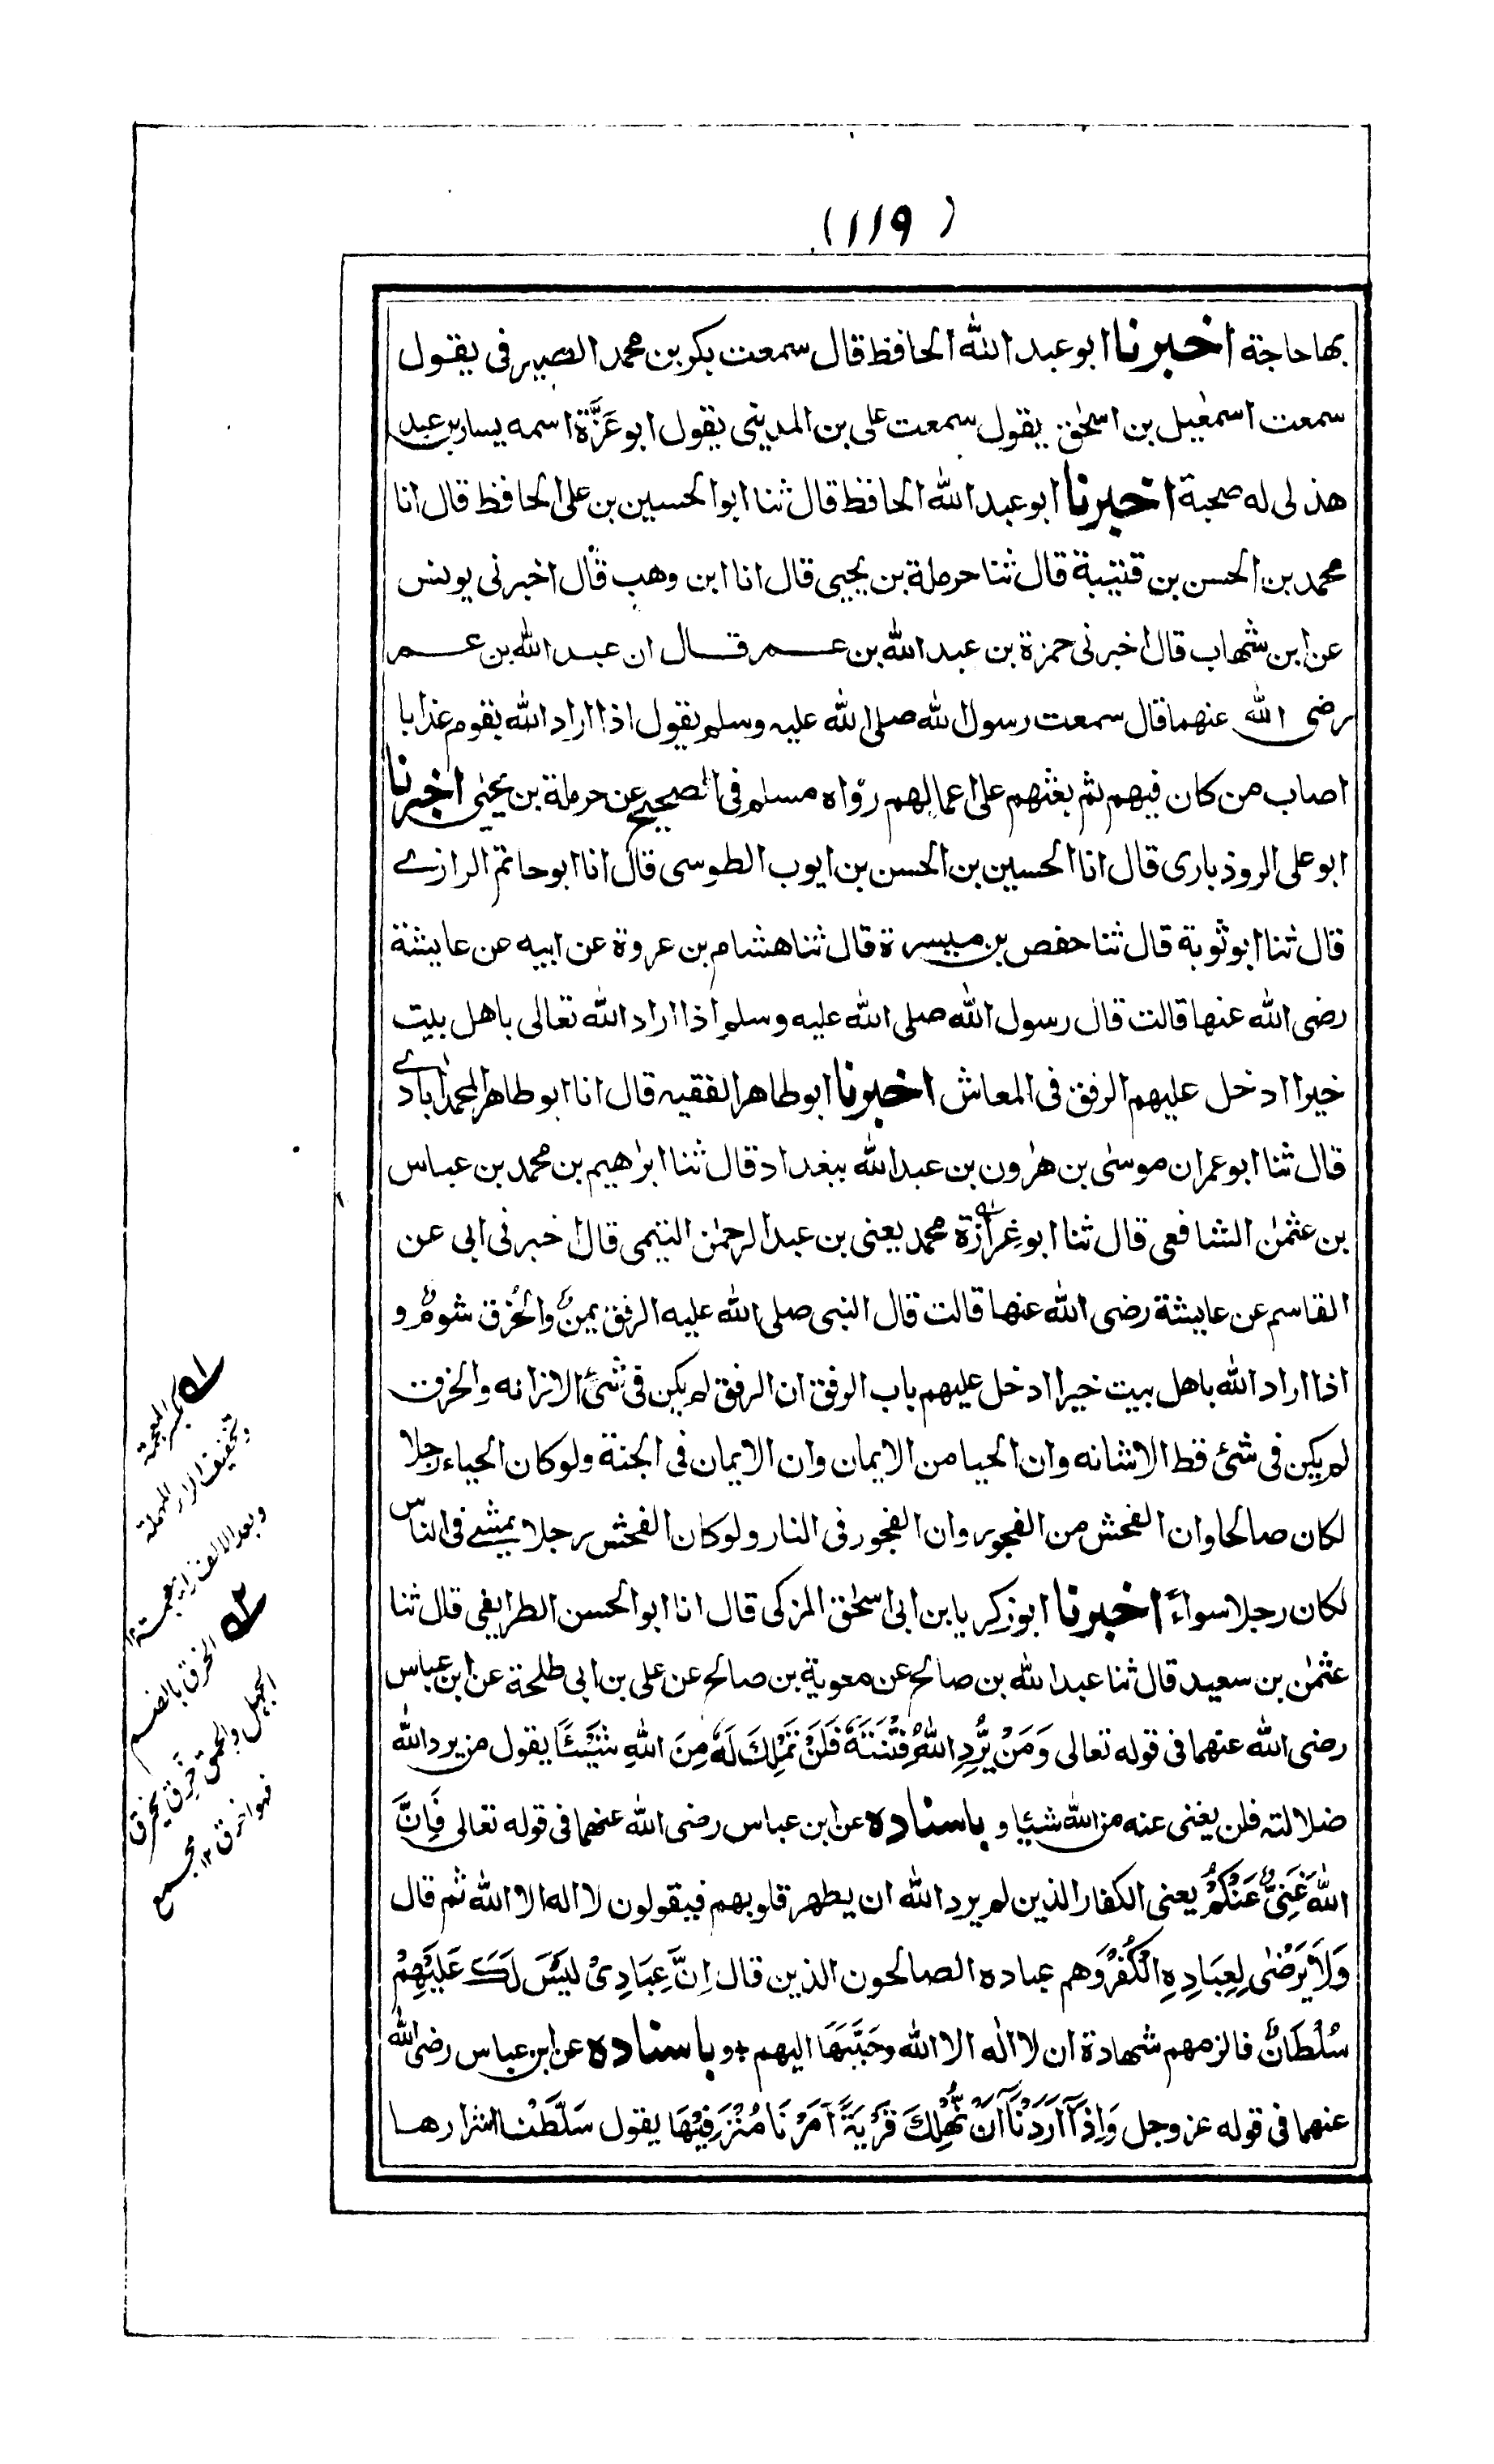 (١١٩)
بها حاجة اخبرنا ابو عبد الله الحافظ قال سمعت بكر بن محمد الصيرفى يقول
سمعت اسمعيل بن اسحٰق يقول سمعت على بن المدينى يقول ابو عَزَّة اسمه يسار بن عبد
هذلى له صحبة اخبرنا ابو عبد الله الحافظ قال ثنا ابو الحسين بن على الحافظ قال انا
محمد بن الحسن بن قتيبة قال ثنا حرملة بن يحيى قال انا ابن وهب قال اخبرنى يونس
عن ابن شهاب قال اخبرنى حمزة بن عبد الله بن عمر قال ان عبد الله بن عمر
رضى الله عنهما قال سمعت رسول الله صلى الله عليه وسلم يقول اذا اراد الله بقوم عذابا
اصاب من كان فيهم ثم بعثهم على اعمالهم رواه مسلم فى الصحيح عن حرملة بن يحيٰى اخبرنا
ابو على الروذبارى قال انا الحسين بن الحسن بن ايوب الطوسى قال انا ابو حاتم الرازے
قال ثنا ابو توبة قال ثنا حفص بن ميسرة قال ثنا هشام بن عروة عن ابيه عن عايشة
رضى الله عنها قالت قال رسول الله صلى الله عليه وسلم اذا اراد الله تعالى باهل بيت
خيرا ادخل عليهم الرفق فى المعاش اخبرنا ابو طاهر الفقيه قال انا ابو طاهر المحمدآبادے
قال ثنا ابو عمران موسٰى بن هٰرون بن عبد الله ببغداد قال ثنا ابرٰهيم بن محمد بن عباس
بن عثمٰن الشافعى قال ثنا ابو غِرازة محمد يعنى بن عبد الرحمٰن التيمى قال اخبرنى ابى عن
القاسم عن عايشة رضى الله عنها قالت قال النبى صلى الله عليه الرفق يمنٌ والخُرق شومٌ و
اذا اراد الله باهل بيت خيرا ادخل عليهم باب الرفق ان الرفق لم يكن فى شئ الا زانه والخرق
لم يكن فى شئ قط الا شانه وان الحيا من الايمان وان الايمان فى الجنة ولو كان الحياء رجلا
لكان صالحا وان الفحش من الفجور وان الفجور فى النار ولو كان الفحش رجلا يمشے فى الناس
لكان رجلا سواءً اخبرنا ابو زكريا بن ابى اسحٰق المزكى قال انا ابو الحسن الطرايفى قال ثنا
عثمٰن بن سعيد قال ثنا عبد الله بن صالح عن معوية بن صالح عن على بن ابى طلحة عن ابن عباس
رضى الله عنهما فى قوله تعالى وَمَنْ يُّرِدِ اللهُ فِتْنَتَهٗ فَلَنْ تَمْلِكَ لَهٗ مِنَ اللهِ شَيْئًا يقول من يرد الله
ضلالته فلن يغنى عنه من الله شيئا و باسناده عن ابن عباس رضى الله عنهما فى قوله تعالى فَاِنَّ
اللهَ غَنِىٌّ عَنْكُمْ يعنى الكفار الذين لم يرد الله ان يطهر قلوبهم فيقولون لا اله الا الله ثم قال
وَلَا يَرْضٰى لِعِبَادِهِ الْكُفْرَ وهم عباده الصالحون الذين قال اِنَّ عِبَادِىْ لَيْسَ لَكَ عَلَيْهِمْ
سُلْطَانٌ فالزمهم شهادة ان لا اله الا الله وحَبَّبَهَا اليهم و باسناده عن ابن عباس رضى الله
عنهما فى قوله عز وجل وَاِذَآ اَرَدْنَآ اَنْ نُّهْلِكَ قَرْيَةً اَمَرْنَا مُتْرَفِيْهَا يقول سَلَّطْنا اشرارها
١ه بكسر المعجمة
وتخفيف الراء المهملة
وبعد الالف زاء معجمة ١٢
٢ه الخرق بالضم
الجهل والحمق خَرِق يخرق
فهو اخرق ١٢ مجمع